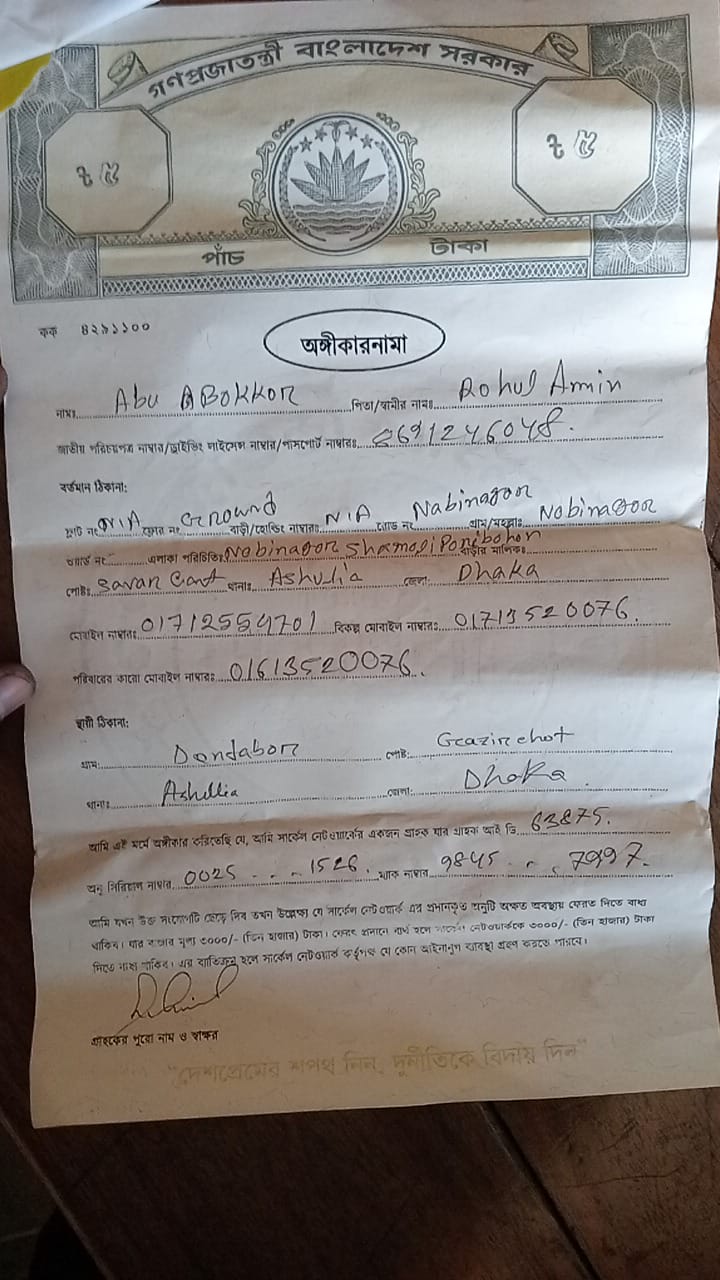 গণপ্রজাতন্ত্রী বাংলাদেশ সরকার
৳ ৫ ৳ ৫
পাঁচ টাকা
কক ৪২৯১১০০
অঙ্গীকারনামা
নামঃ Abu ABokkor পিতা/স্বামীর নামঃ Rohul Amin
জাতীয় পরিচয়পত্র নাম্বার/ড্রাইভিং লাইসেন্স নাম্বার/পাসপোর্ট নাম্বারঃ 8691246048.
বর্তমান ঠিকানা:
ফ্লাট নং N/A ফ্লোর নং Ground বাড়ী/হোল্ডিং নাম্বারঃ N/A রোড নং Nabinagor গ্রাম/মহল্লাঃ Nobinagor
ওয়ার্ড নং এলাকা পরিচিতিঃ Nobinagor বাড়ীর মালিকঃ
পোষ্টঃ Savar Cant থানাঃ Ashulia জেলা: Dhaka
মোবাইল নাম্বারঃ 01712554701 বিকল্প মোবাইল নাম্বারঃ 01713520076.
পরিবারের কারো মোবাইল নাম্বারঃ 01613520076.
স্থায়ী ঠিকানা:
গ্রাম: Dondabor পোষ্ট: Gazirchot
থানাঃ Ashulia জেলা: Dhaka.
আমি এই মর্মে অঙ্গীকার করিতেছি যে, আমি সার্কেল নেটওয়ার্কের একজন গ্রাহক যার গ্রাহক আই ডি 63875.
অনু সিরিয়াল নাম্বার 0025 - - - 1526. ম্যাক নাম্বার 9845 - - , 7997.
আমি যখন উক্ত সংযোগটি ছেড়ে দিব তখন উল্লেখ্য যে সার্কেল নেটওয়ার্ক এর প্রদানকৃত অনুটি অক্ষত অবস্থায় ফেরত দিতে বাধ্য
থাকিব। যার বাজার মূল্য ৩০০০/- (তিন হাজার) টাকা। ফেরৎ প্রদানে ব্যর্থ হলে সার্কেল নেটওয়ার্ককে ৩০০০/- (তিন হাজার) টাকা
দিতে বাধ্য থাকিব। এর ব্যতিক্রম হলে সার্কেল নেটওয়ার্ক কর্তৃপক্ষ যে কোন আইনানুগ ব্যবস্থা গ্রহণ করতে পারবে।
গ্রাহকের পুরো নাম ও স্বাক্ষর
"দেশপ্রেমের শপথ নিন, দুর্নীতিকে বিদায় দিন"